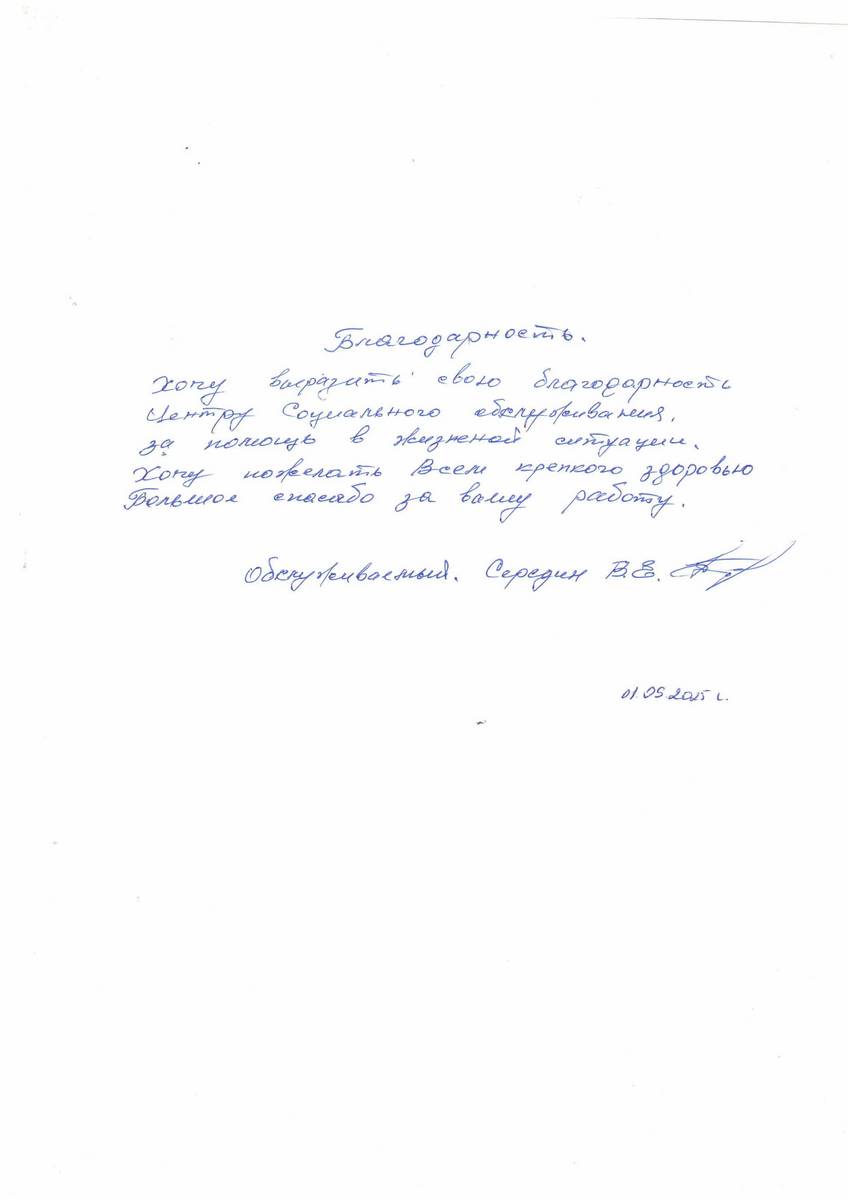 Благодарность.
Хочу выразить свою благодарность
Центру Социального обслуживания,
за помощь в жизненой ситуации.
Хочу пожелать Всем крепкого здоровью
Большое спасибо за вашу работу.
Обслуживаемый. Середин В.Е.
01.09.2015 г.